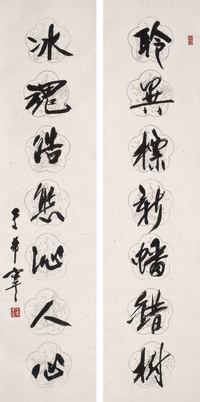 聆異標新幡錯樹
冰魂浩態沁人心